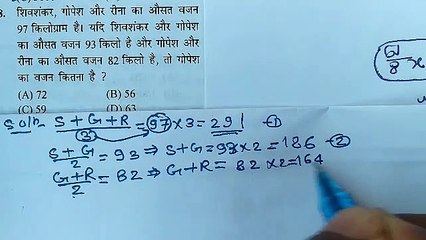 3. शिवशंकर, गोपेश और रीना का औसत वजन
97 किलोग्राम है। यदि शिवशंकर और गोपेश
का औसत वजन 93 किलो है और गोपेश और
रीना का औसत वजन 82 किलो है, तो गोपेश
का वजन कितना है ?
(A) 72 (B) 56
(C) 59 (D) 63
Soln S+G+R/3 = 97×3 = 291 ①
S+G/2 = 93 ⇒ S+G = 93×2 = 186 ②
G+R/2 = 82 ⇒ G+R = 82×2=164